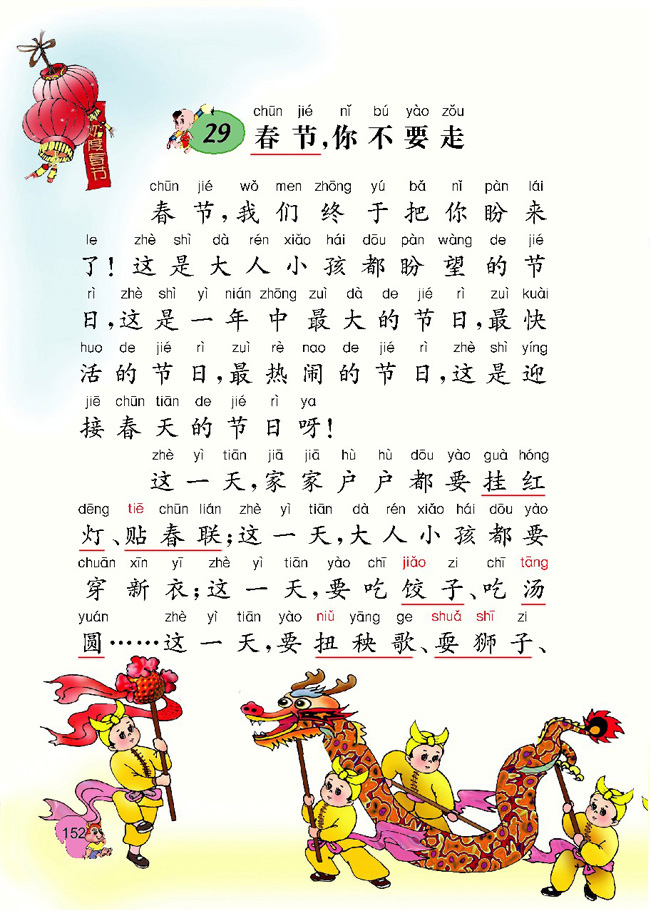 chūn jié nǐ bú yào zǒu
29 春节,你不要走
chūn jié wǒ men zhōng yú bǎ nǐ pàn lái
春节,我们终于把你盼来
le zhè shì dà rén xiǎo hái dōu pàn wàng de jié
了!这是大人小孩都盼望的节
rì zhè shì yì nián zhōng zuì dà de jié rì zuì kuài
日,这是一年中最大的节日,最快
huo de jié rì zuì rè nao de jié rì zhè shì yíng
活的节日,最热闹的节日,这是迎
jiē chūn tiān de jié rì ya
接春天的节日呀!
zhè yì tiān jiā jiā hù hù dōu yào guà hóng
这一天,家家户户都要挂红
dēng tiē chūn lián zhè yì tiān dà rén xiǎo hái dōu yào
灯、贴春联;这一天,大人小孩都要
chuān xīn yī zhè yì tiān yào chī jiǎo zi chī tāng
穿新衣;这一天,要吃饺子、吃汤
yuán zhè yì tiān yào niǔ yāng ge shuǎ shī zi
圆……这一天,要扭秧歌、耍狮子、
152